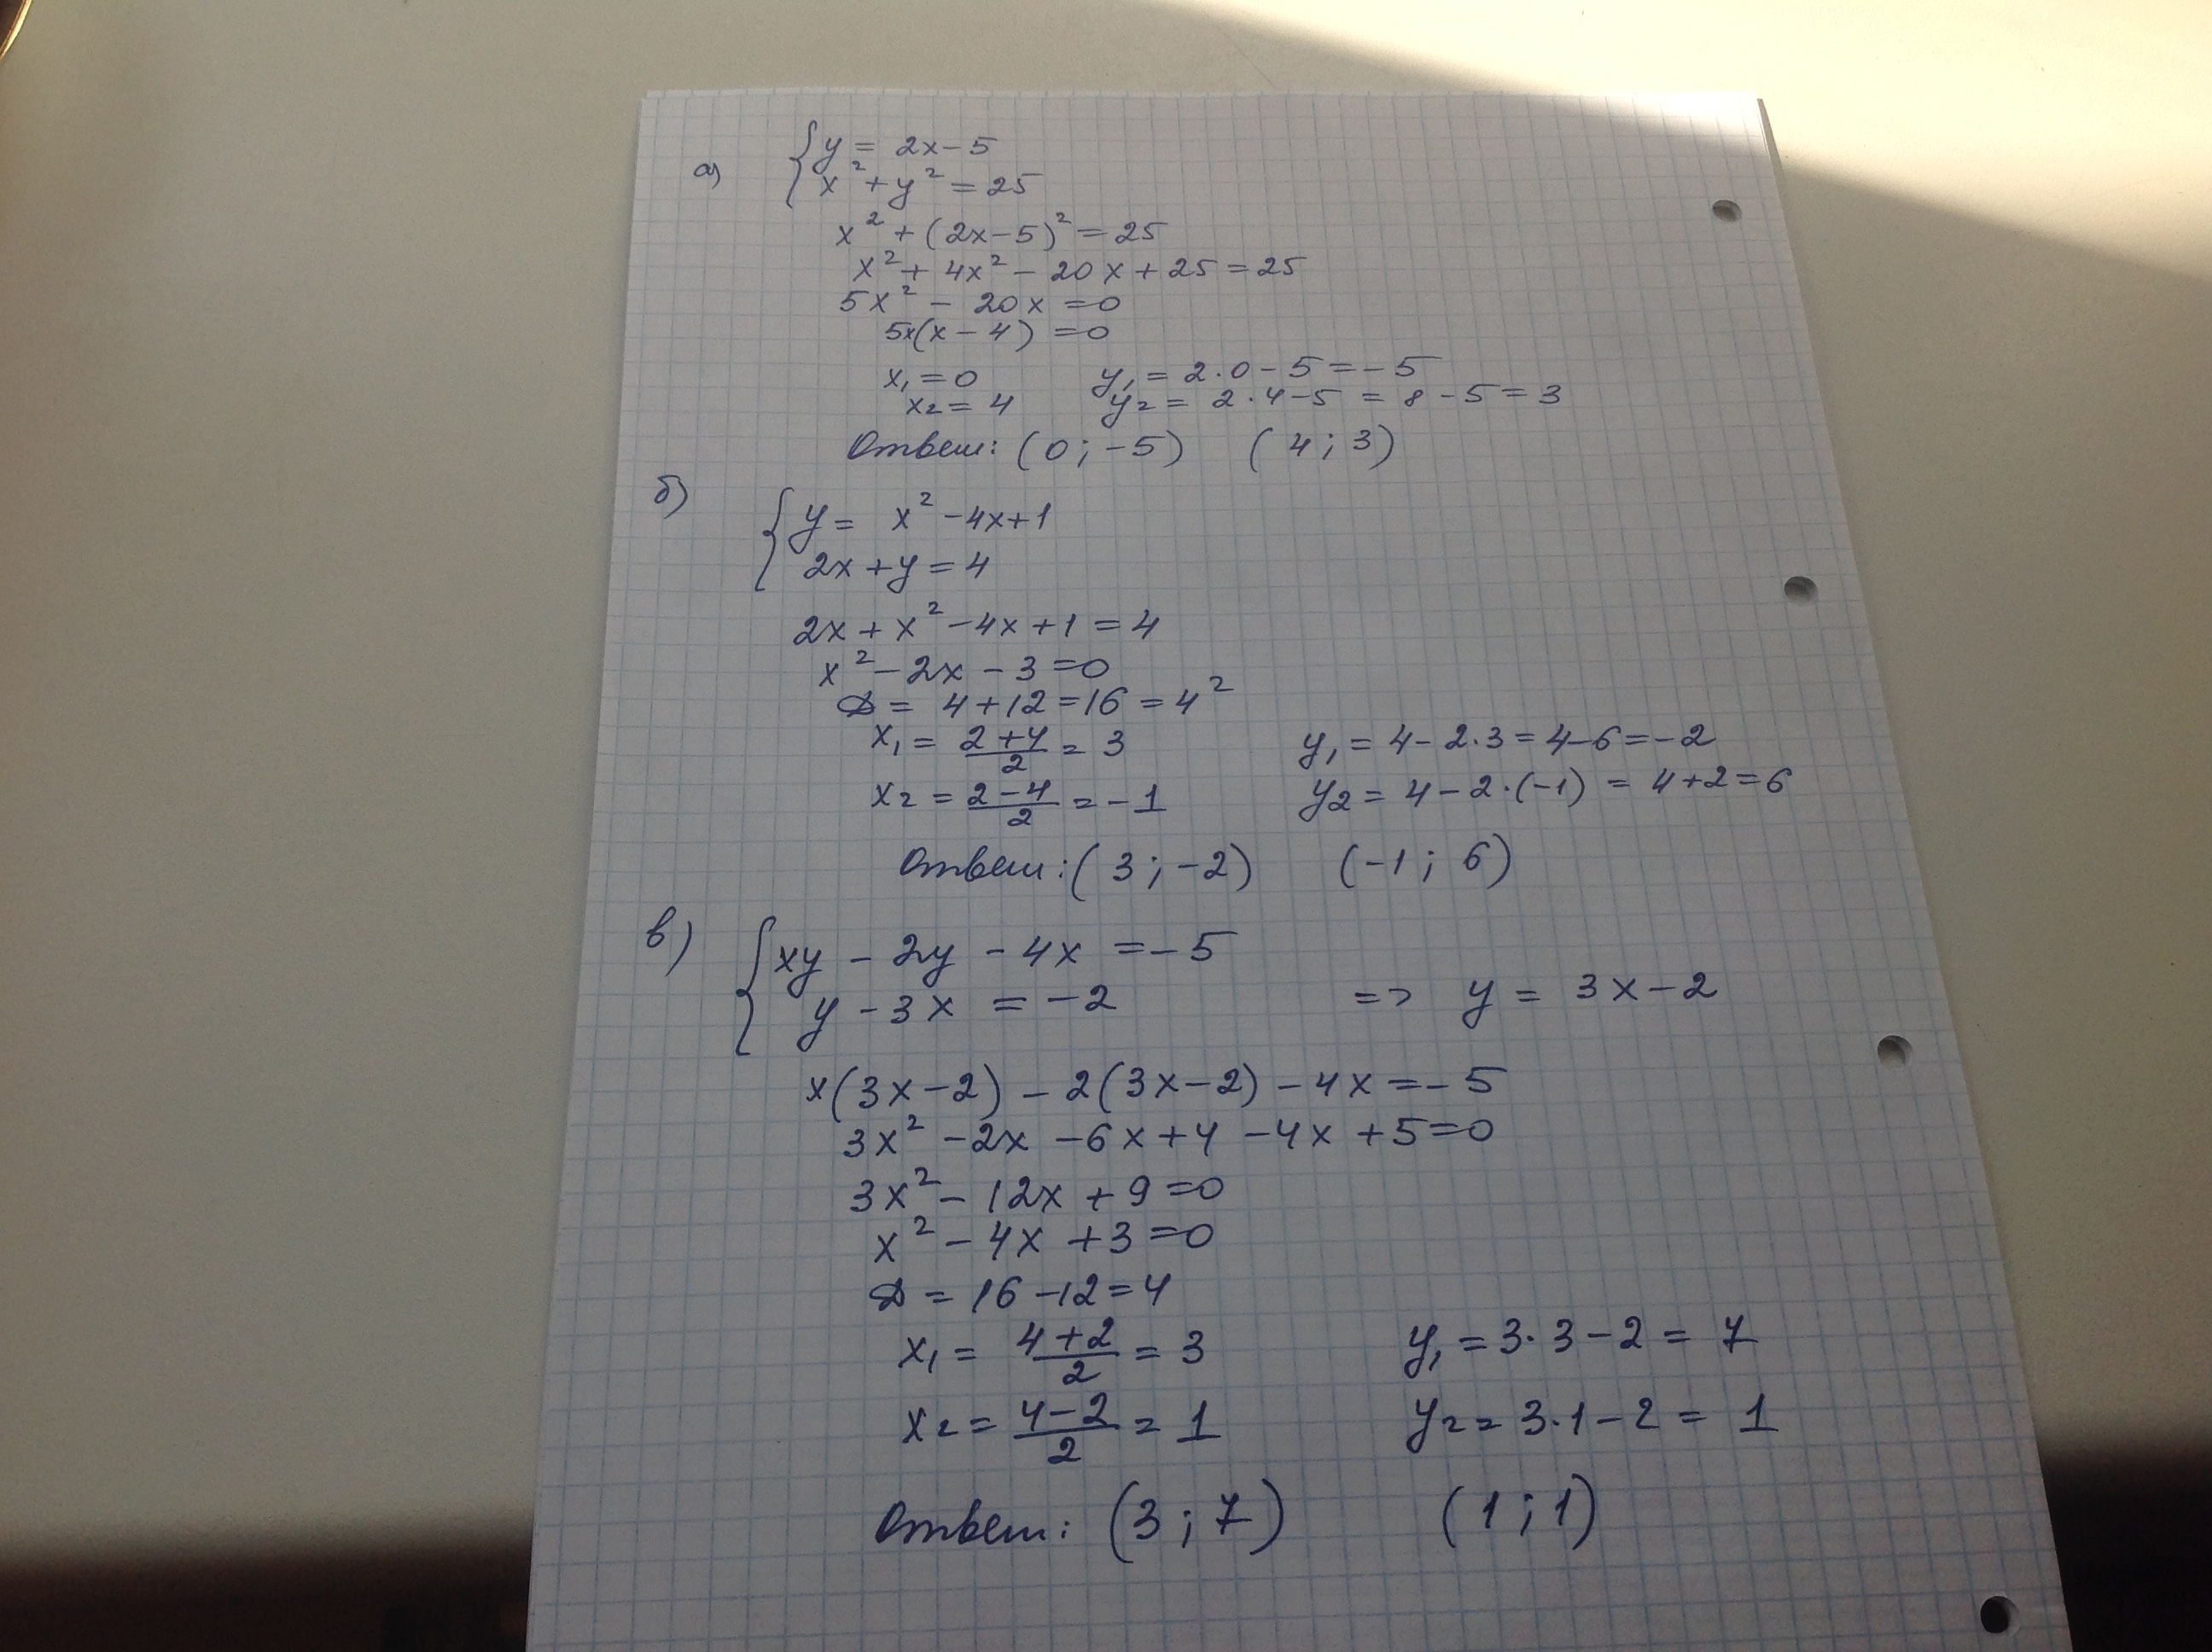 а) { y = 2x - 5
x² + y² = 25
x² + (2x - 5)² = 25
x² + 4x² - 20x + 25 = 25
5x² - 20x = 0
5x(x - 4) = 0
x₁ = 0 y₁ = 2·0 - 5 = -5
x₂ = 4 y₂ = 2·4 - 5 = 8 - 5 = 3
Ответ: (0; -5) (4; 3)
б) { y = x² - 4x + 1
2x + y = 4
2x + x² - 4x + 1 = 4
x² - 2x - 3 = 0
D = 4 + 12 = 16 = 4²
x₁ = (2+4)/2 = 3 y₁ = 4 - 2·3 = 4 - 6 = -2
x₂ = (2-4)/2 = -1 y₂ = 4 - 2·(-1) = 4 + 2 = 6
Ответ: (3; -2) (-1; 6)
в) { xy - 2y - 4x = -5
y - 3x = -2 => y = 3x - 2
x(3x - 2) - 2(3x - 2) - 4x = -5
3x² - 2x - 6x + 4 - 4x + 5 = 0
3x² - 12x + 9 = 0
x² - 4x + 3 = 0
D = 16 - 12 = 4
x₁ = (4+2)/2 = 3 y₁ = 3·3 - 2 = 7
x₂ = (4-2)/2 = 1 y₂ = 3·1 - 2 = 1
Ответ: (3; 7) (1; 1)